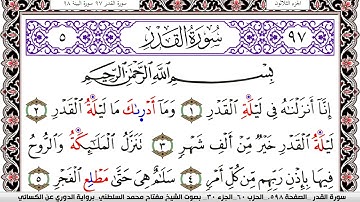 الجزء الثلاثون
سورة القدر ٩٧ سورة البينة ٩٨
٩٧ سُورَةُ القَدْرِ ٥
بِسْمِ اللَّهِ الرَّحْمَٰنِ الرَّحِيمِ
إِنَّا أَنزَلْنَٰهُ فِي لَيْلَةِ الْقَدْرِ ١ وَمَا أَدْرِىٰكَ مَا لَيْلَةُ الْقَدْرِ ٢
لَيْلَةُ الْقَدْرِ خَيْرٌ مِّنْ أَلْفِ شَهْرٍ ٣ تَنَزَّلُ الْمَلَٰٓئِكَةُ وَالرُّوحُ
فِيهَا بِإِذْنِ رَبِّهِم مِّن كُلِّ أَمْرٍ ٤ سَلَٰمٌ هِيَ حَتَّىٰ مَطْلِعِ الْفَجْرِ
سورة القدر . الصفحة ٥٩٨ . الحزب ٦٠ . الجزء ٣٠ . بصوت الشيخ مفتاح محمد السلطني . برواية الدوري عن الكسائي